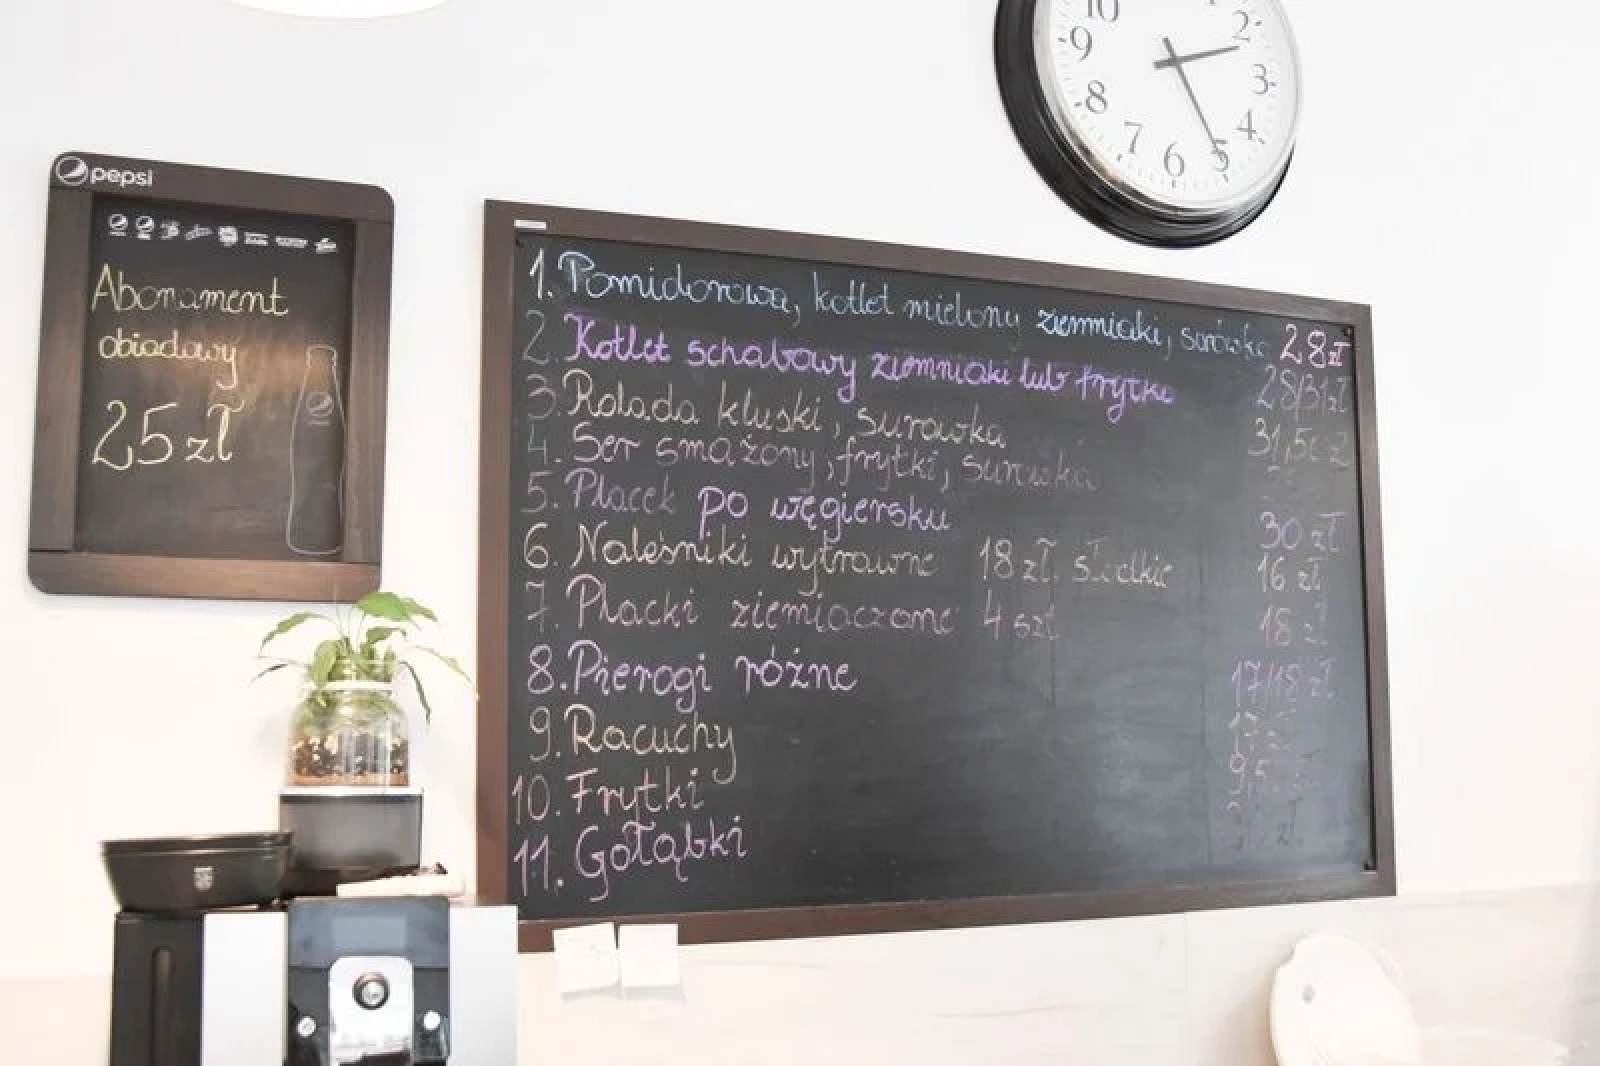 pepsi
Abonament
obiadowy
25 zł
1. Pomidorowa, kotlet mielony ziemniaki, surówka 28 zł
2. Kotlet schabowy ziemniaki lub frytki 28/31 zł
3. Rolada kluski, surówka 31,50 zł
4. Ser smażony, frytki, surówka
5. Placek po węgiersku 30 zł
6. Naleśniki wytrawne 18 zł, słodkie 16 zł
7. Placki ziemiaczane 4 szt 18 zł
8. Pierogi różne 17/18 zł
9. Racuchy 17
10. Frytki 9,5
11. Gołąbki zł
10
2
9
3
8
4
7
6
5